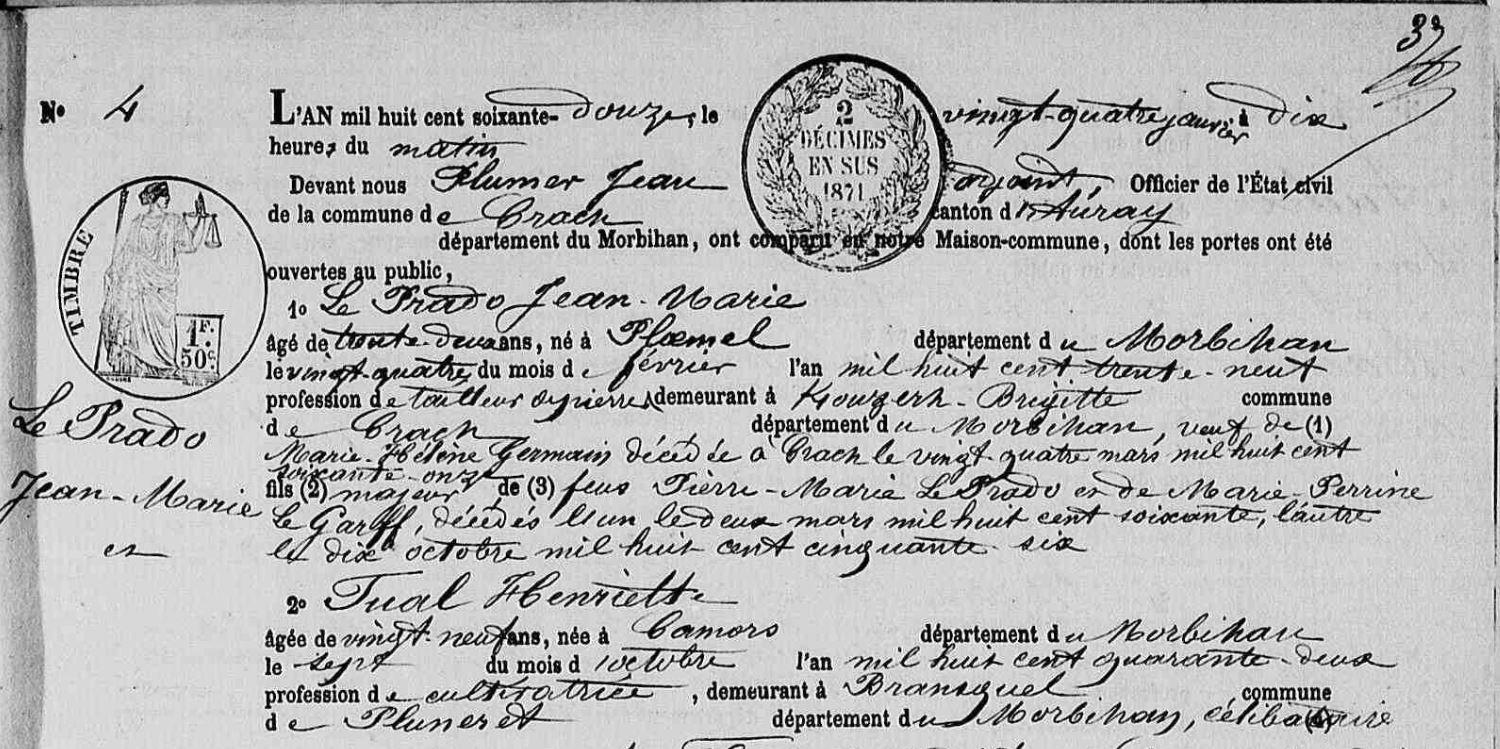 3e
N° 4 L'AN mil huit cent soixante-douze, le vingt-quatre janvier à dix
heures du matin
2
DÉCIMES
EN SUS
1871
Devant nous Plumer Jean adjoint, Officier de l'État civil
de la commune de Crach canton d'Auray
département du Morbihan, ont comparu en notre Maison-commune, dont les portes ont été
ouvertes au public,
TIMBRE
1F.
50c.
1° Le Prado Jean-Marie
âgé de trente-deux ans, né à Ploemel département du Morbihan
le vingt-quatre du mois de février l'an mil huit cent trente-neuf
profession de tailleur de pierres demeurant à Brigitte commune
de Crach département du Morbihan, veuf de (1)
Marie-Hélène Germain décédée à Crach le vingt-quatre mars mil huit cent
soixante-onze
fils (2) majeur de (3) feus Pierre-Marie Le Prado et de Marie-Perrine
Le Garff, décédés l'un le deux mars mil huit cent soixante, l'autre
le dix octobre mil huit cent cinquante-six
Le Prado
Jean-Marie
et
2° Tual Henriette
âgée de vingt-neuf ans, née à Camors département du Morbihan
le sept du mois d'octobre l'an mil huit cent quarante-deux
profession de cultivatrice, demeurant à Bransquel commune
de Pluneret département du Morbihan, célibataire